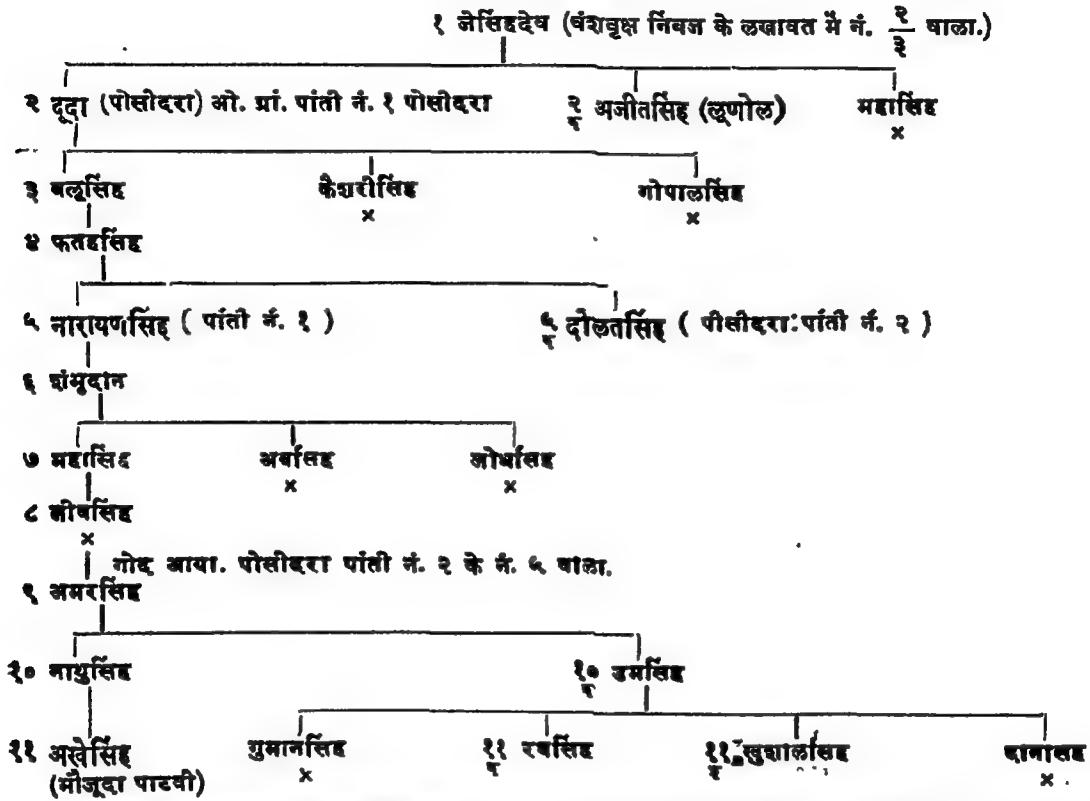 १ जेसिंहदेव (वंशवृक्ष निंबज के लखावत में नं. २/३ वाला.)
२ दूदा (पोसीदरा) ओ. प्रां. पांती नं. १ पोसीदरा २/१ अजीतसिंह (लूणोल) महासिंह
× 
३ बलूसिंह केशरीसिंह गोपालसिंह
× ×
४ फतहसिंह
५ नारायणसिंह ( पांती नं. १ ) ५/१ दोलतसिंह ( पोसीदरा पांती नं. २ )
६ शंभूदान
७ महासिंह अर्बासिंह जोधसिंह
× ×
८ जीवसिंह
×
गोद आया. पोसीदरा पांती नं. २ के नं. ५ वाला.
९ अमरसिंह
१० नाथुसिंह १०/१ उमसिंह
११ अखेसिंह गुमानसिंह ११/१ रघसिंह ११/२ खुशालसिंह दानासिंह
(मौजूदा पाटवी) × ×